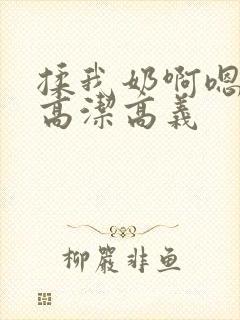 揉我奶啊嗯
高潔高義
柳嚴非鱼